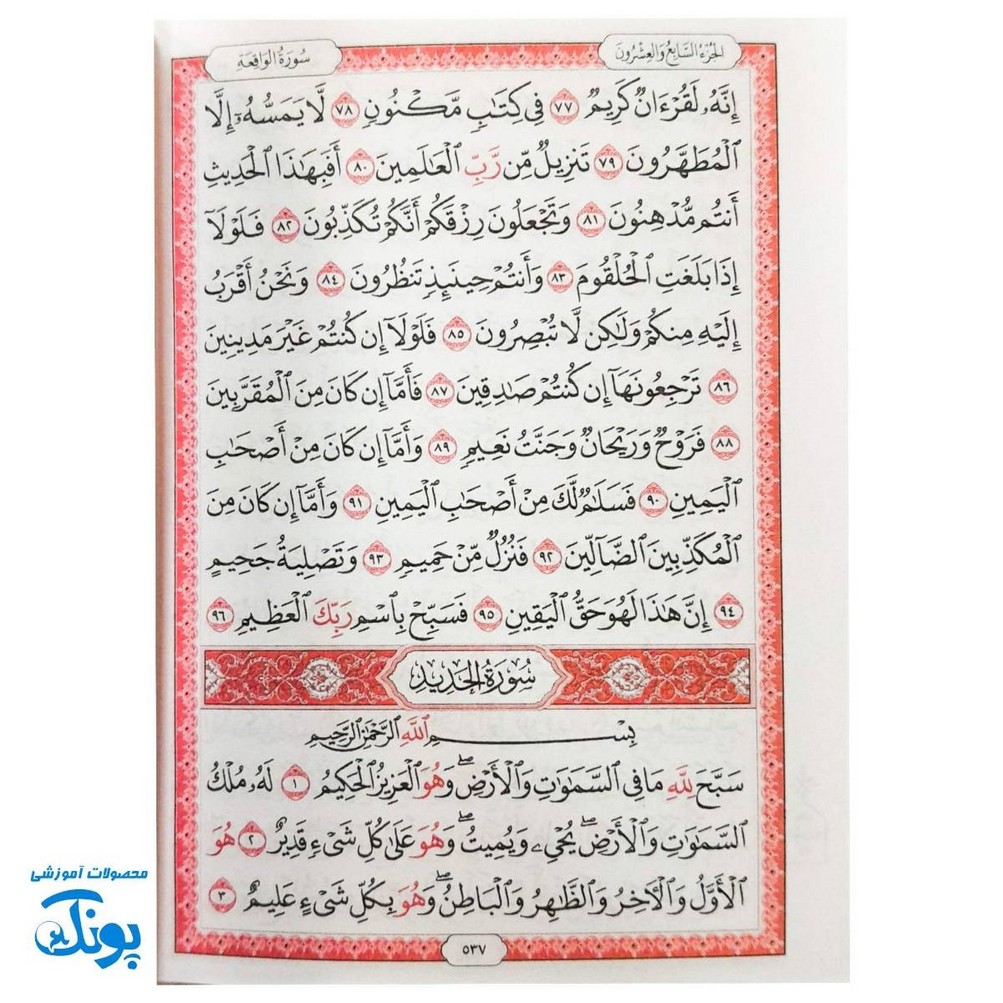 الجُزءُ السَّابِعُ وَالعِشرُونَ
سُورَةُ الوَاقِعَةِ
إِنَّهُۥ لَقُرْءَانٌ كَرِيمٌ ٧٧ فِى كِتَـٰبٍ مَّكْنُونٍ ٧٨ لَّا يَمَسُّهُۥٓ إِلَّا
ٱلْمُطَهَّرُونَ ٧٩ تَنزِيلٌ مِّن رَّبِّ ٱلْعَـٰلَمِينَ ٨٠ أَفَبِهَـٰذَا ٱلْحَدِيثِ
أَنتُم مُّدْهِنُونَ ٨١ وَتَجْعَلُونَ رِزْقَكُمْ أَنَّكُمْ تُكَذِّبُونَ ٨٢ فَلَوْلَآ
إِذَا بَلَغَتِ ٱلْحُلْقُومَ ٨٣ وَأَنتُمْ حِينَئِذٍ تَنظُرُونَ ٨٤ وَنَحْنُ أَقْرَبُ
إِلَيْهِ مِنكُمْ وَلَـٰكِن لَّا تُبْصِرُونَ ٨٥ فَلَوْلَآ إِن كُنتُمْ غَيْرَ مَدِينِينَ
٨٦ تَرْجِعُونَهَآ إِن كُنتُمْ صَـٰدِقِينَ ٨٧ فَأَمَّآ إِن كَانَ مِنَ ٱلْمُقَرَّبِينَ
٨٨ فَرَوْحٌ وَرَيْحَانٌ وَجَنَّتُ نَعِيمٍ ٨٩ وَأَمَّآ إِن كَانَ مِنْ أَصْحَـٰبِ
ٱلْيَمِينِ ٩٠ فَسَلَـٰمٌ لَّكَ مِنْ أَصْحَـٰبِ ٱلْيَمِينِ ٩١ وَأَمَّآ إِن كَانَ مِنَ
ٱلْمُكَذِّبِينَ ٱلضَّآلِّينَ ٩٢ فَنُزُلٌ مِّنْ حَمِيمٍ ٩٣ وَتَصْلِيَةُ جَحِيمٍ
٩٤ إِنَّ هَـٰذَا لَهُوَ حَقُّ ٱلْيَقِينِ ٩٥ فَسَبِّحْ بِٱسْمِ رَبِّكَ ٱلْعَظِيمِ ٩٦
سُورَةُ الحَدِيدِ
بِسْمِ ٱللَّهِ ٱلرَّحْمَـٰنِ ٱلرَّحِيمِ
سَبَّحَ لِلَّهِ مَا فِى ٱلسَّمَـٰوَٰتِ وَٱلْأَرْضِ ۖ وَهُوَ ٱلْعَزِيزُ ٱلْحَكِيمُ ١ لَهُۥ مُلْكُ
ٱلسَّمَـٰوَٰتِ وَٱلْأَرْضِ ۖ يُحْىِۦ وَيُمِيتُ ۖ وَهُوَ عَلَىٰ كُلِّ شَىْءٍ قَدِيرٌ ٢ هُوَ
ٱلْأَوَّلُ وَٱلْـَٔاخِرُ وَٱلظَّـٰهِرُ وَٱلْبَاطِنُ ۖ وَهُوَ بِكُلِّ شَىْءٍ عَلِيمٌ ٣
٥٣٧
محصولات آموزشی
پونک